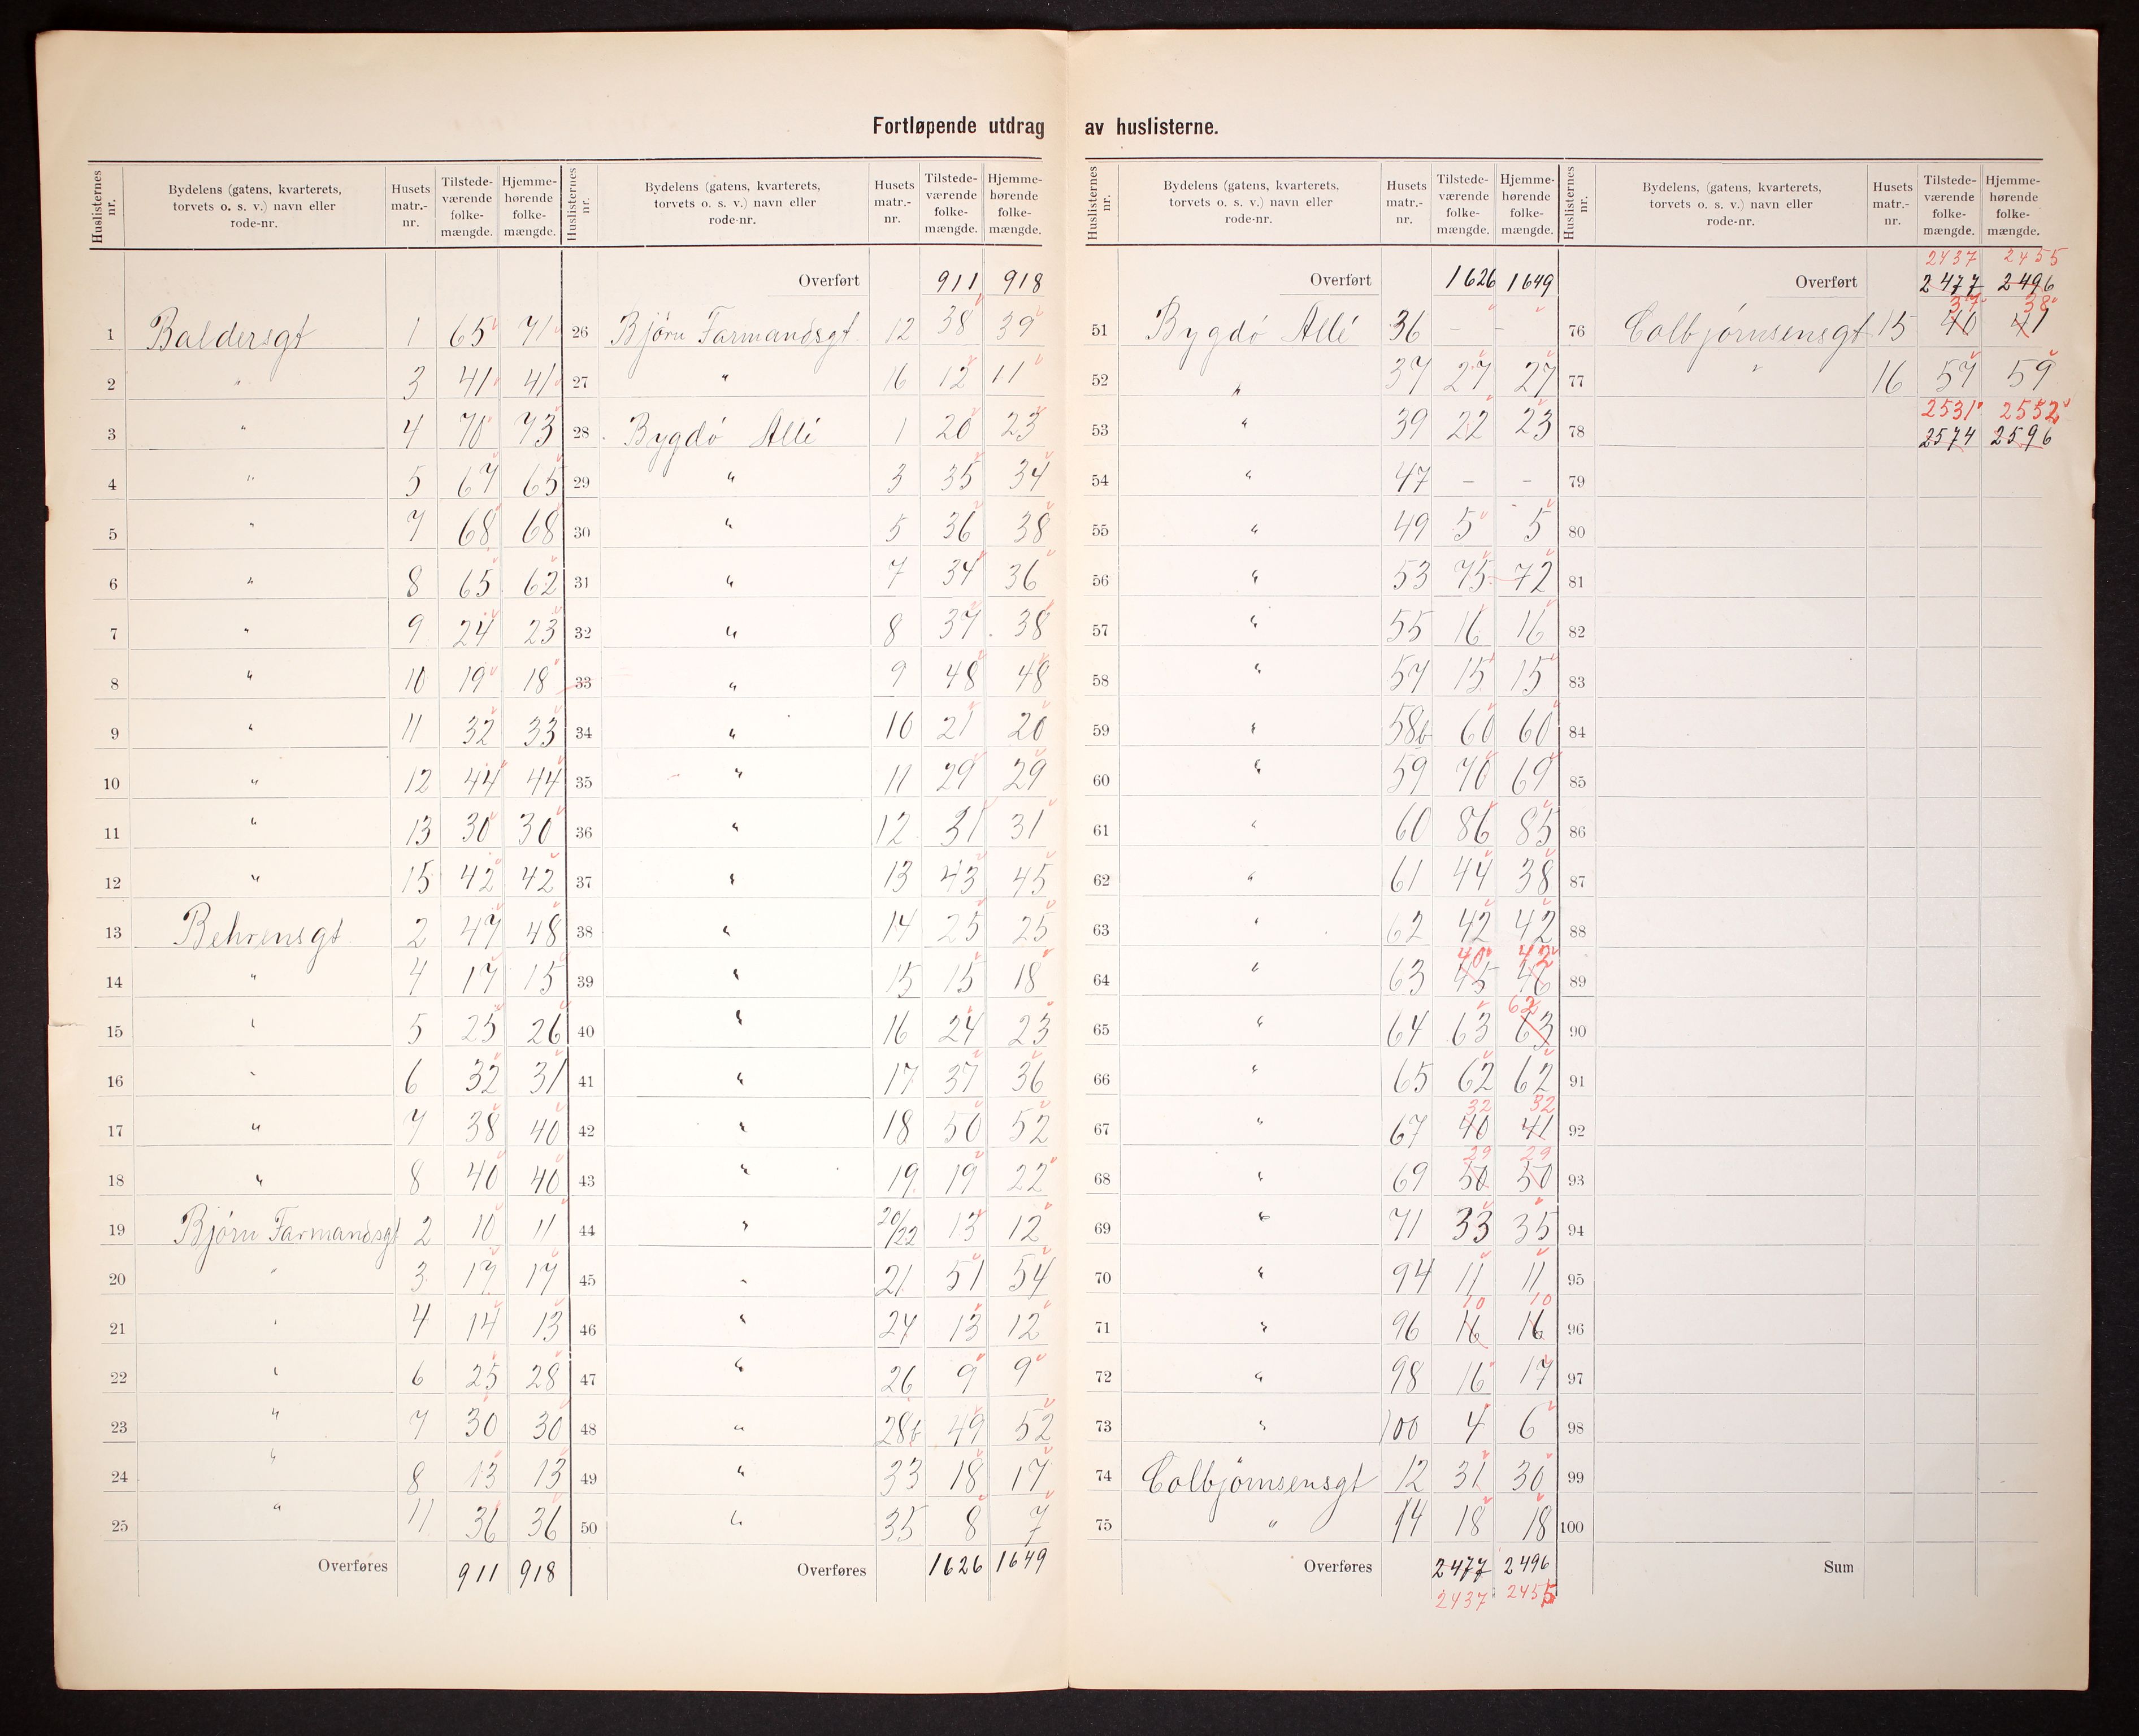 Fortløpende utdrag av huslisterne.
Huslisternes nr. | Bydelens (gatens, kvarterets, torvets o. s. v.) navn eller rode-nr. | Husets matr.-nr. | Tilstede-værende folke-mængde. | Hjemme-hørende folke-mængde.
1 Baldersgt 1 65 71
2 " 3 41 41
3 " 4 70 73
4 " 5 67 65
5 " 7 68 68
6 " 8 65 62
7 " 9 24 23
8 " 10 19 18
9 " 11 32 33
10 " 12 44 44
11 " 13 30 30
12 " 15 42 42
13 Behrensgt 2 47 48
14 " 4 17 15
15 " 5 25 26
16 " 6 32 31
17 " 7 38 40
18 " 8 40 40
19 Bjørn Farmandsgt 2 10 11
20 " 3 17 17
21 " 4 14 13
22 " 6 25 28
23 " 7 30 30
24 " 8 13 13
25 " 11 36 36
Overføres 911 918
Huslisternes nr. | Bydelens (gatens, kvarterets, torvets o. s. v.) navn eller rode-nr. | Husets matr.-nr. | Tilstede-værende folke-mængde. | Hjemme-hørende folke-mængde.
Overført 911 918
26 Bjørn Farmandsgt. 12 38 39
27 " 16 12 11
28 Bygdö Allé 1 20 23
29 " 3 35 34
30 " 5 36 38
31 " 7 34 36
32 " 8 37 38
33 " 9 48 48
34 " 10 21 20
35 " 11 29 29
36 " 12 31 31
37 " 13 43 45
38 " 14 25 25
39 " 15 15 18
40 " 16 24 23
41 " 17 37 36
42 " 18 50 52
43 " 19 19 22
44 " 20/22 13 12
45 " 21 51 54
46 " 24 13 12
47 " 26 9 9
48 " 28b 49 52
49 " 33 18 17
50 " 35 8 7
Overføres 1626 1649
Huslisternes nr. | Bydelens (gatens, kvarterets, torvets o. s. v.) navn eller rode-nr. | Husets matr.-nr. | Tilstede-værende folke-mængde. | Hjemme-hørende folke-mængde.
Overført 1626 1649
51 Bygdö Allé 36 – –
52 " 37 27 27
53 " 39 22 23
54 " 47 – –
55 " 49 5 5
56 " 53 75 72
57 " 55 16 16
58 " 57 15 15
59 " 58b 60 60
60 " 59 70 69
61 " 60 86 85
62 " 61 44 38
63 " 62 42 42
40 42
64 " 63 45 46
62
65 " 64 63 63
66 " 65 62 62
32 32
67 " 67 40 41
29 29
68 " 69 50 50
69 " 71 33 35
70 " 94 11 11
10 10
71 " 96 16 16
72 " 98 16 17
73 " 100 4 6
74 Colbjørnsensgt 12 31 30
75 " 14 18 18
Overføres 2477 2496
2437 2455
Huslisternes nr. | Bydelens, (gatens, kvarterets, torvets o. s. v.) navn eller rode-nr. | Husets matr.-nr. | Tilstede-værende folke-mængde. | Hjemme-hørende folke-mængde.
2437 2455
Overført 2477 2496
37 38
76 Colbjørnsensgt 15 40 41
77 " 16 57 59
2531 2552
78 2574 2596
79
80
81
82
83
84
85
86
87
88
89
90
91
92
93
94
95
96
97
98
99
100
Sum